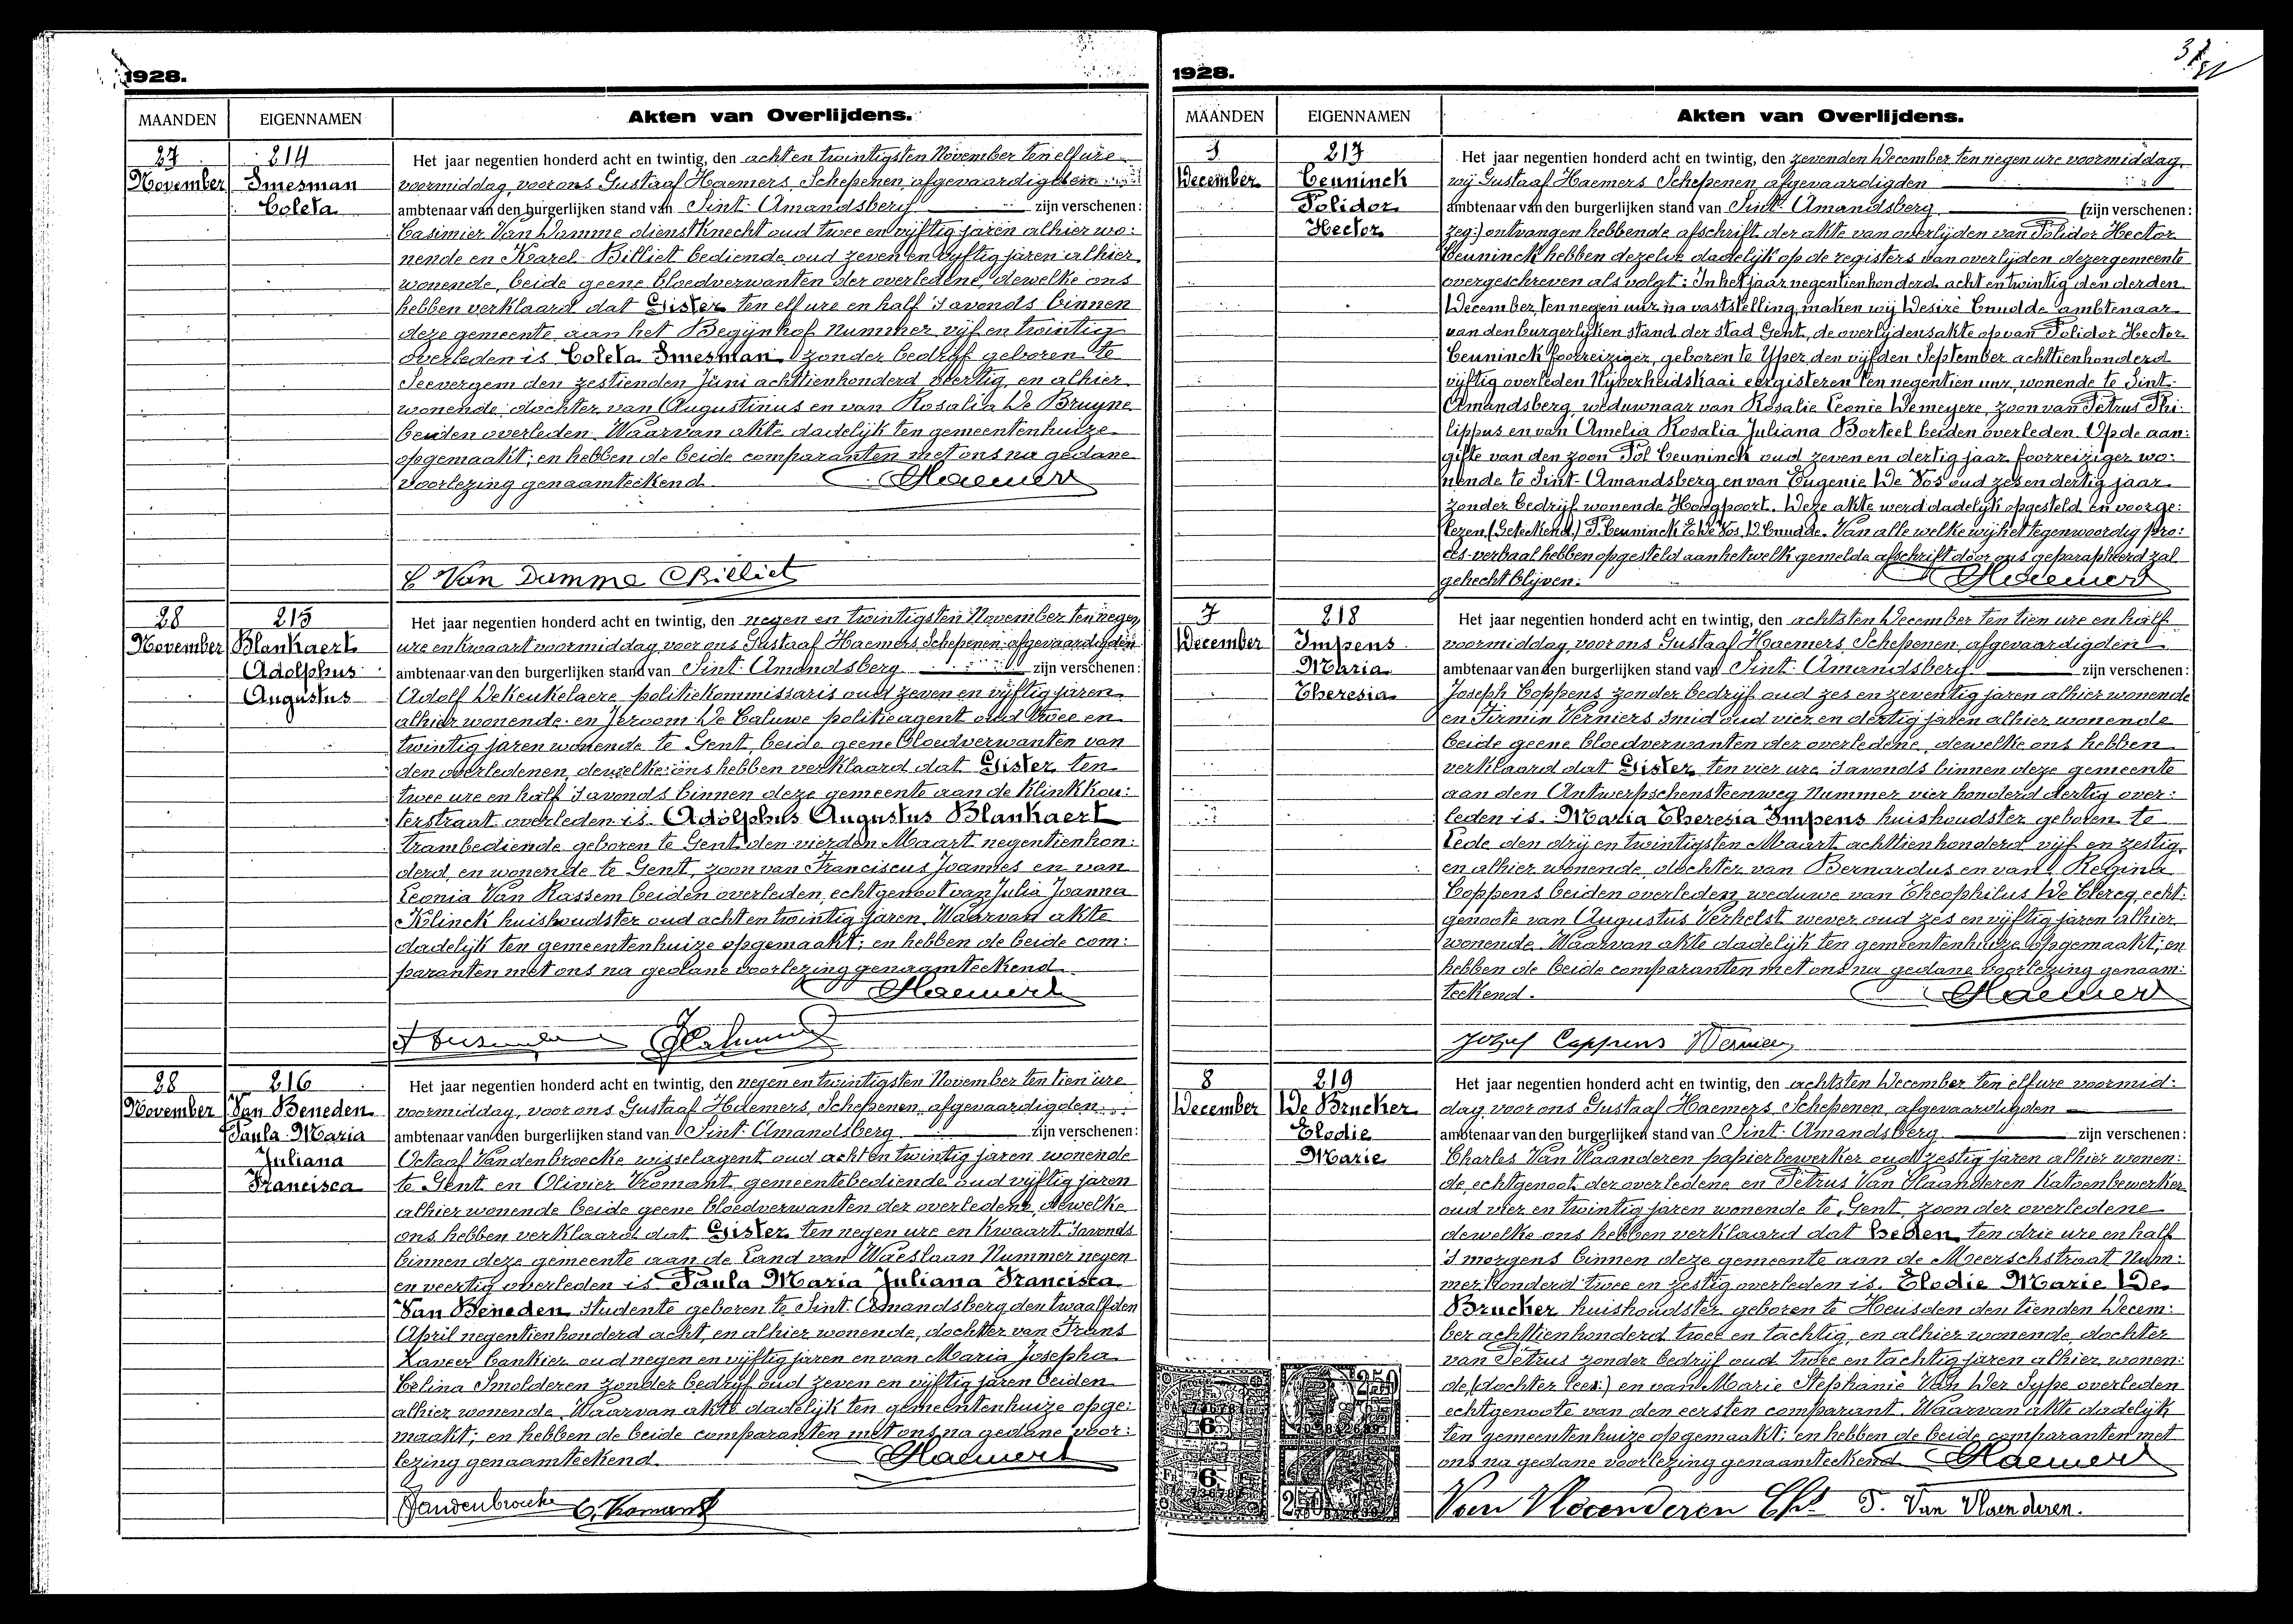 1928.
MAANDEN EIGENNAMEN Akten van Overlijdens.
27 214 Het jaar negentien honderd acht en twintig, den acht en twintigsten November ten elf ure
November Smesman voormiddag, voor ons Gustaaf Haemers, Schepenen, afgevaardigden
Coleta ambtenaar van den burgerlijken stand van Sint-Amandsberg zijn verschenen:
Casimier Van Damme dienstknecht oud twee en vijftig jaren alhier wo:
nende en Karel Billiet bediende oud zeven en vijftig jaren alhier
wonende, beide geene bloedverwanten der overledene, dewelke ons
hebben verklaard dat Gister ten elf ure en half 's avonds binnen
deze gemeente aan het Begijnhof nummer vijf en twintig
overleden is Coleta Smesman zonder bedrijf geboren te
Seevergem den zestienden Juni achttienhonderd veertig en alhier
wonende, dochter van Augustinus en van Rosalia De Bruyne
beiden overleden. Waarvan akte dadelijk ten gemeentenhuize
opgemaakt; en hebben de beide comparanten met ons na gedane
voorlezing genaamteekend. Haemers
C Van Damme CBilliet
28 215 Het jaar negentien honderd acht en twintig, den negen en twintigsten November ten negen
November Blankaert ure en kwaart voormiddag voor ons Gustaaf Haemers, Schepenen, afgevaardigden
Adolphus ambtenaar van den burgerlijken stand van Sint-Amandsberg zijn verschenen:
Augustus Adolf De Keukelaere politiekommissaris oud zeven en vijftig jaren
alhier wonende en Jeroom De Caluwe politieagent oud twee en
twintig jaren wonende te Gent, beide geene bloedverwanten van
den overledenen, dewelke ons hebben verklaard dat Gister ten
twee ure en half 's avonds binnen deze gemeente aan de Klinkkou:
terstraat overleden is Adolphus Augustus Blankaert
trambediende geboren te Gent den vierden Maart negentienhon:
derd, en wonende te Gent, zoon van Franciscus Joannes en van
Leonia Van Rassem beiden overleden, echtgenoot van Julia Joanna
Klinck huishoudster oud acht en twintig jaren. Waarvan akte
dadelijk ten gemeentenhuize opgemaakt; en hebben de beide com:
paranten met ons na gedane voorlezing genaamteekend.
Haemers
28 216 Het jaar negentien honderd acht en twintig, den negen en twintigsten November ten tien ure
November Van Beneden voormiddag, voor ons Gustaaf Haemers, Schepenen, afgevaardigden
Paula Maria ambtenaar van den burgerlijken stand van Sint-Amandsberg zijn verschenen:
Juliana Octaaf Vandenbroecke wisselagent oud acht en twintig jaren wonende
Francisca te Gent en Olivier Vromant gemeentebediende oud vijftig jaren
alhier wonende beide geene bloedverwanten der overledene, dewelke
ons hebben verklaard dat Gister ten negen ure en kwaart 's avonds
binnen deze gemeente aan de Land van Waeslaan Nummer negen
en veertig overleden is Paula Maria Juliana Francisca
Van Beneden studente geboren te Sint-Amandsberg den twaalfden
April negentienhonderd acht, en alhier wonende, dochter van Frans
Xaveer bankier oud negen en vijftig jaren en van Maria Josepha
Celina Smolderen zonder bedrijf oud zeven en vijftig jaren beiden
alhier wonende. Waarvan akte dadelijk ten gemeentenhuize opge:
maakt; en hebben de beide comparanten met ons na gedane voor:
lezing genaamteekend. Haemers
Vandenbroecke O. Vromant
1928.
MAANDEN EIGENNAMEN Akten van Overlijdens.
3 217 Het jaar negentien honderd acht en twintig, den zevenden December ten negen ure voormiddag,
December Ceuninck wij Gustaaf Haemers Schepenen afgevaardigden
Polidor ambtenaar van den burgerlijken stand van Sint-Amandsberg (zijn verschenen:
Hector zeg:) ontvangen hebbende afschrift der akte van overlijden van Polidor Hector
Ceuninck hebben dezelve dadelijk op de registers van overlijden dezer gemeente
overgeschreven als volgt: In het jaar negentienhonderd acht en twintig den derden
December, ten negen uur na vaststelling, maken wij Desiré Cnudde ambtenaar
van den burgerlijken stand der stad Gent, de overlijdensakte op van Polidor Hector
Ceuninck foorreiziger, geboren te Yper, den vijfden September achttienhonderd
vijftig overleden Nijverheidskaai eergisteren ten negentien uur, wonende te Sint-
Amandsberg, weduwnaar van Rosalie Leonie Demeyere, zoon van Petrus Phi:
lippus en van Amelia Rosalia Juliana Borteel beiden overleden. Op de aan:
gifte van den zoon Pol Ceuninck oud zeven en dertig jaar foorreiziger wo:
nende te Sint-Amandsberg en van Eugenie De Vos oud zes en dertig jaar
zonder bedrijf wonende Hoogpoort. Deze akte werd dadelijk opgesteld en voorge:
lezen. (Geteekend) P. Ceuninck E De Vos, D. Cnudde. Van alle welke wij het tegenwoordig pro:
ces-verbaal hebben opgesteld aan hetwelk gemelde afschrift door ons geparapheerd zal
gehecht blijven. Haemers
7 218 Het jaar negentien honderd acht en twintig, den achtsten December ten tien ure en half
December Impens voormiddag, voor ons Gustaaf Haemers, Schepenen, afgevaardigden
Maria ambtenaar van den burgerlijken stand van Sint-Amandsberg zijn verschenen:
Theresia Joseph Coppens zonder bedrijf oud zes en zeventig jaren alhier wonende
en Firmin Verniers smid oud vier en dertig jaren alhier wonende
beide geene bloedverwanten der overledene, dewelke ons hebben
verklaard dat Gister ten vier ure 's avonds binnen deze gemeente
aan den Antwerpschensteenweg nummer vier honderd dertig over:
leden is Maria Theresia Impens huishoudster geboren te
Lede den drij en twintigsten Maart achttienhonderd vijf en zestig,
en alhier wonende, dochter van Bernardus en van Regina
Coppens beiden overleden, weduwe van Theophilus De Clercq, echt:
genoote van Augustus Verhelst wever oud zes en vijftig jaren alhier
wonende. Waarvan akte dadelijk ten gemeentenhuize opgemaakt; en
hebben de beide comparanten met ons na gedane voorlezing genaam:
teekend. Haemers
Jozef Coppens Verniers
8 219 Het jaar negentien honderd acht en twintig, den achtsten December ten elf ure voormid:
December De Brucker dag, voor ons Gustaaf Haemers, Schepenen, afgevaardigden
Elodie ambtenaar van den burgerlijken stand van Sint-Amandsberg zijn verschenen:
Marie Charles Van Vlaanderen papierbewerker oud zestig jaren alhier wonen:
de, echtgenoot der overledene en Petrus Van Vlaanderen katoenbewerker
oud vier en twintig jaren wonende te Gent, zoon der overledene
dewelke ons hebben verklaard dat heden ten drie ure en half
's morgens binnen deze gemeente aan de Meerschstraat Num:
mer honderd twee en zestig overleden is Elodie Marie De
Brucker huishoudster geboren te Heusden den tienden Decem:
ber achttienhonderd twee en tachtig, en alhier wonende, dochter
van Petrus zonder bedrijf oud twee en tachtig jaren alhier wonen:
de, (dochter lees:) en van Marie Stephanie Van Der Sype overleden
echtgenoote van den eersten comparant. Waarvan akte dadelijk
ten gemeentenhuize opgemaakt; en hebben de beide comparanten met
ons na gedane voorlezing genaamteekend. Haemers
Van Vlaenderen Chs P. Van Vlaenderen.